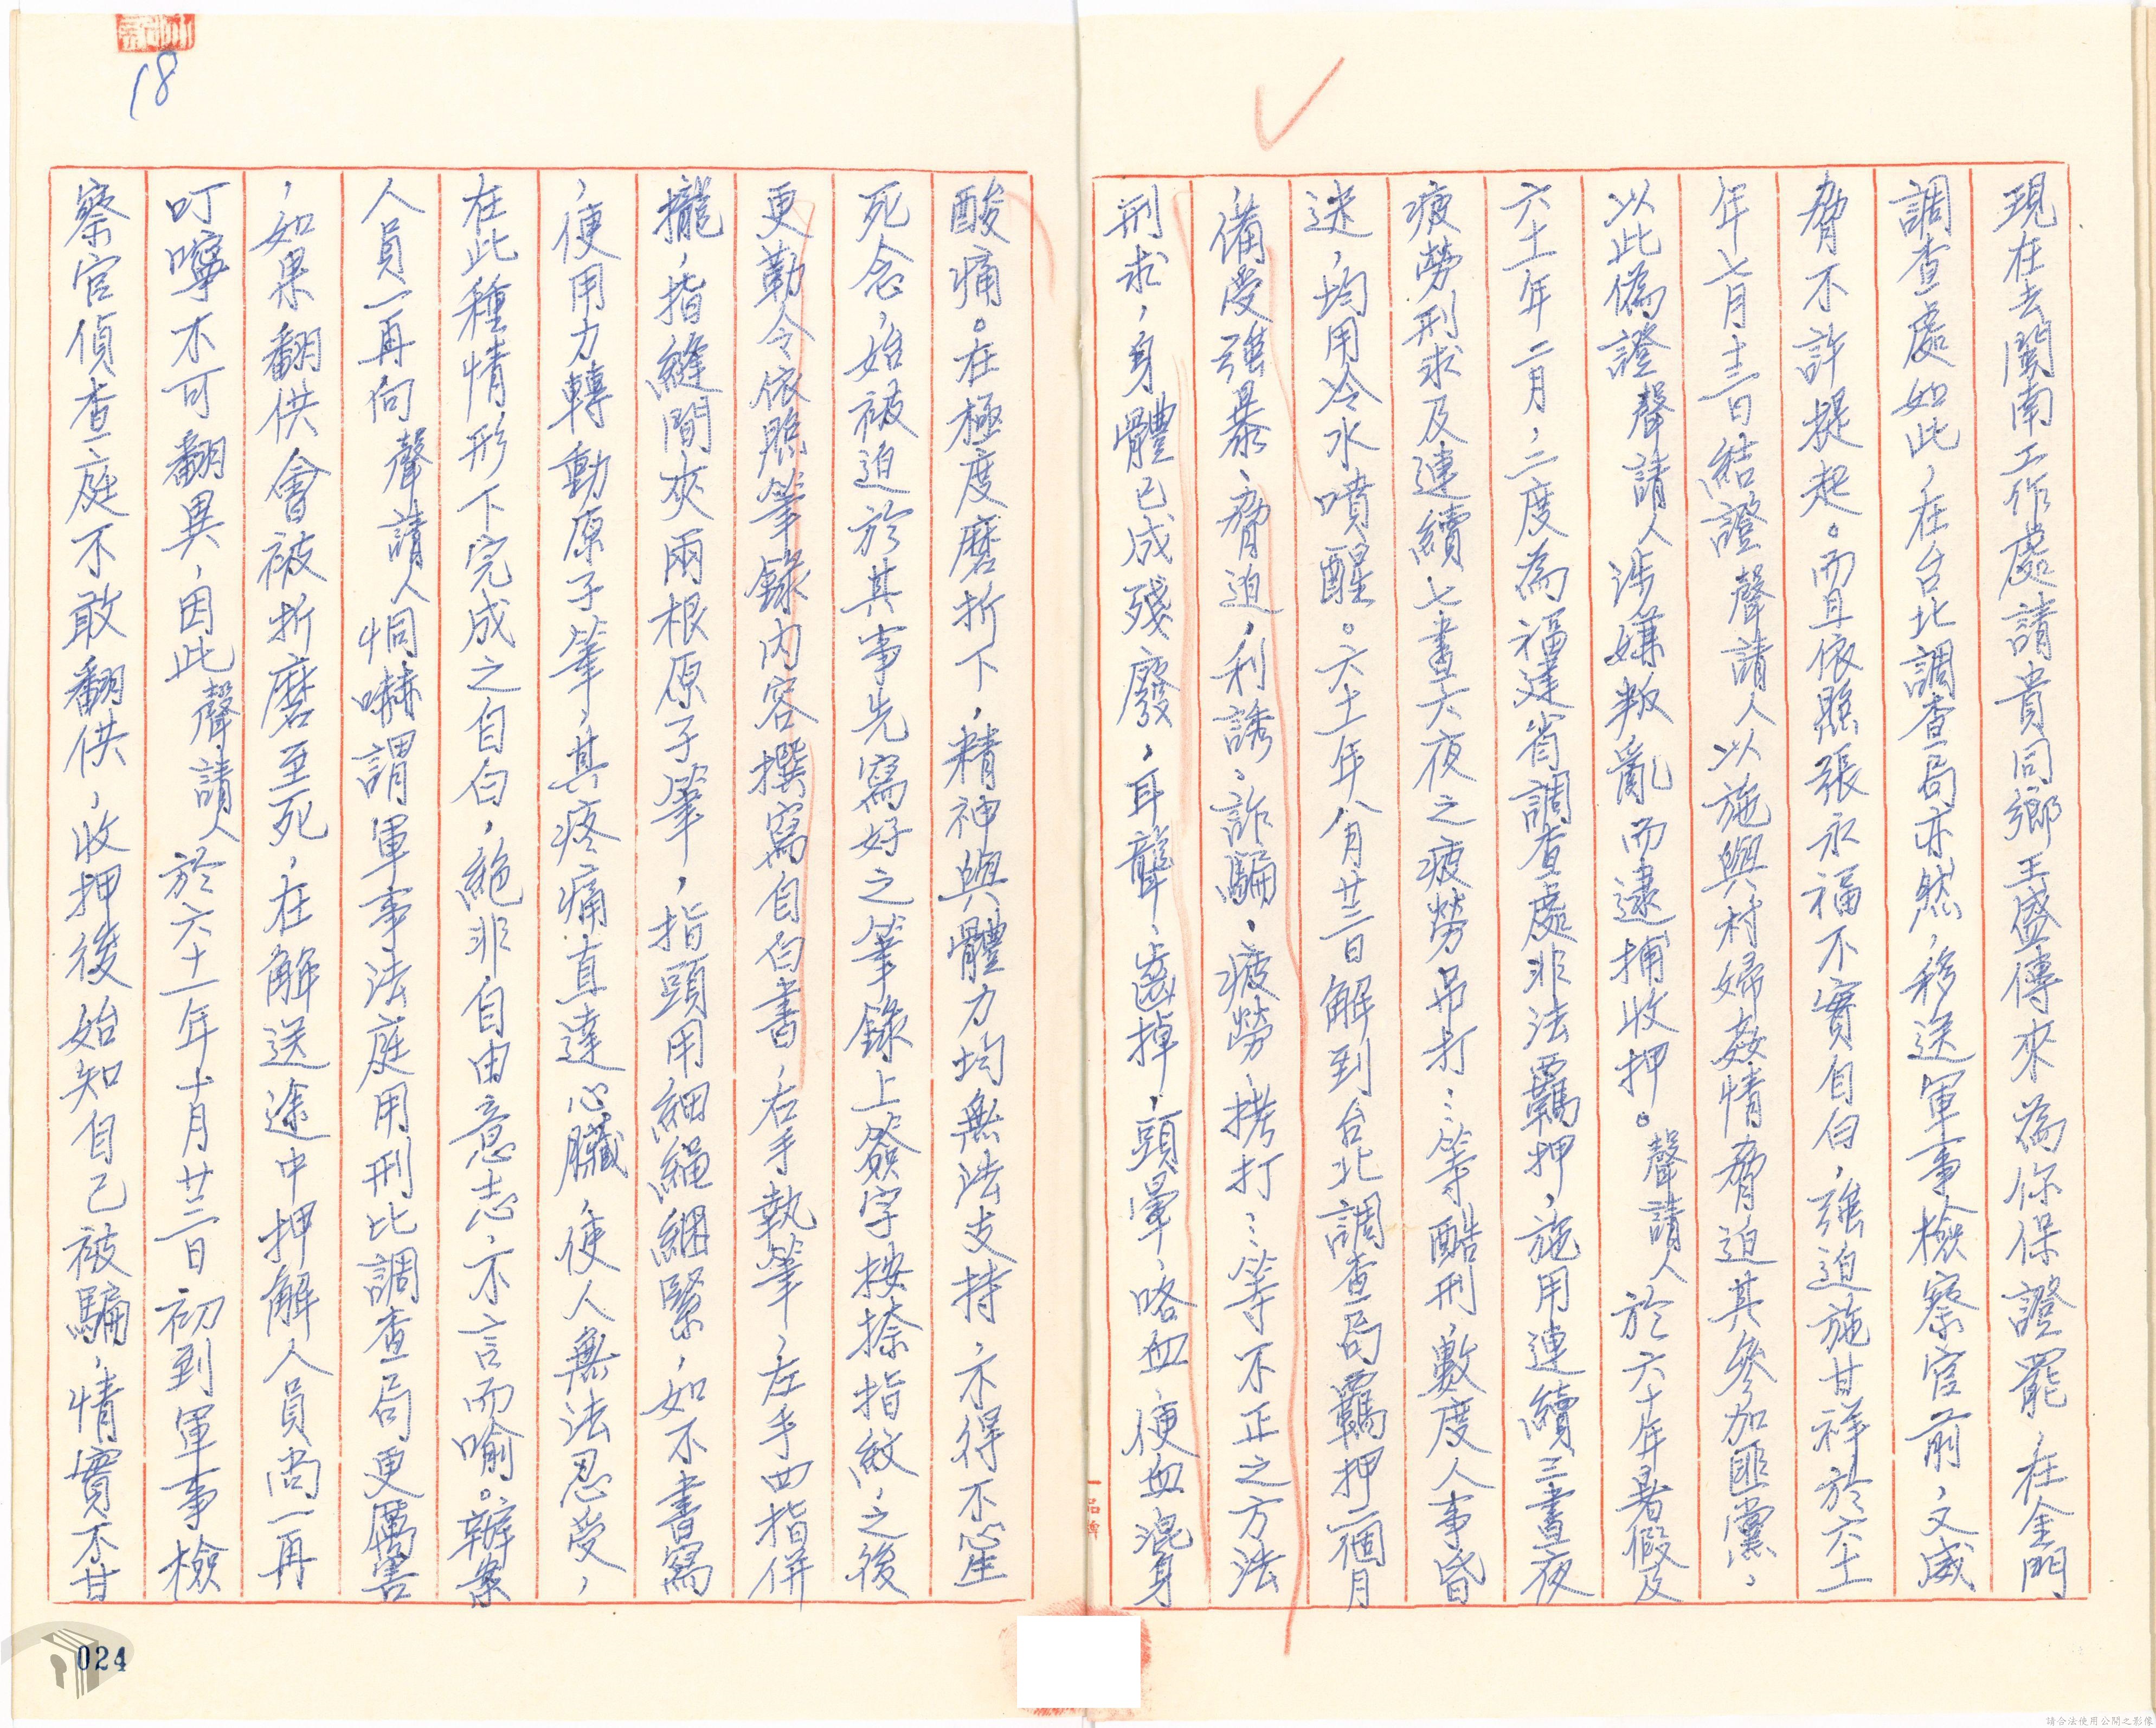 現在去閩南工作處請貴同鄉王盛傳來為你保證罷，在金門
調查處如此，在台北調查局亦然，移送軍事檢察官前，又威
脅不許提起。而且依照張永福不實自白，強迫施甘祥於六十
年七月十三日結證聲請人以施與村婦姦情脅迫其參加匪黨，
以此偽證聲請人涉嫌叛亂而逮捕收押。聲請人於六十年暑假及
六十一年二月，二度為福建省調查處非法羈押，施用連續三晝夜
疲勞刑求及連續七晝六夜之疲勞吊打…等酷刑，數度人事昏
迷，均用冷水噴醒。六十一年八月廿三日解到台北調查局羈押二個月
備受強暴、脅迫，利誘、詐騙，疲勞，拷打…等不正之方法
刑求，身體已成殘廢，耳聾，齒掉，頭暈，咯血，便血混身
酸痛。在極度磨折下，精神與體力均無法支持，不得不心生
死念，始被迫於其事先寫好之筆錄上簽字按捺指紋，之後
更勒令依照筆錄內容撰寫自白書，右手執筆，左手四指併
攏，指縫間夾兩根原子筆，指頭用細繩綑緊，如不書寫
，便用力轉動原子筆，其疼痛直達心臟，使人無法忍受，
在此種情形下完成之自白，絕非自由意志，不言而喻。辦案
人員一再向聲請人恫嚇謂軍事法庭用刑比調查局更厲害
，如果翻供會被折磨至死，在解送途中押解人員尚一再
叮嚀不可翻異，因此聲請人於六十一年十月廿三日初到軍事檢
察官偵查庭不敢翻供，收押後始知自己被騙，情實不甘
18
024
請合法使用公開之影像